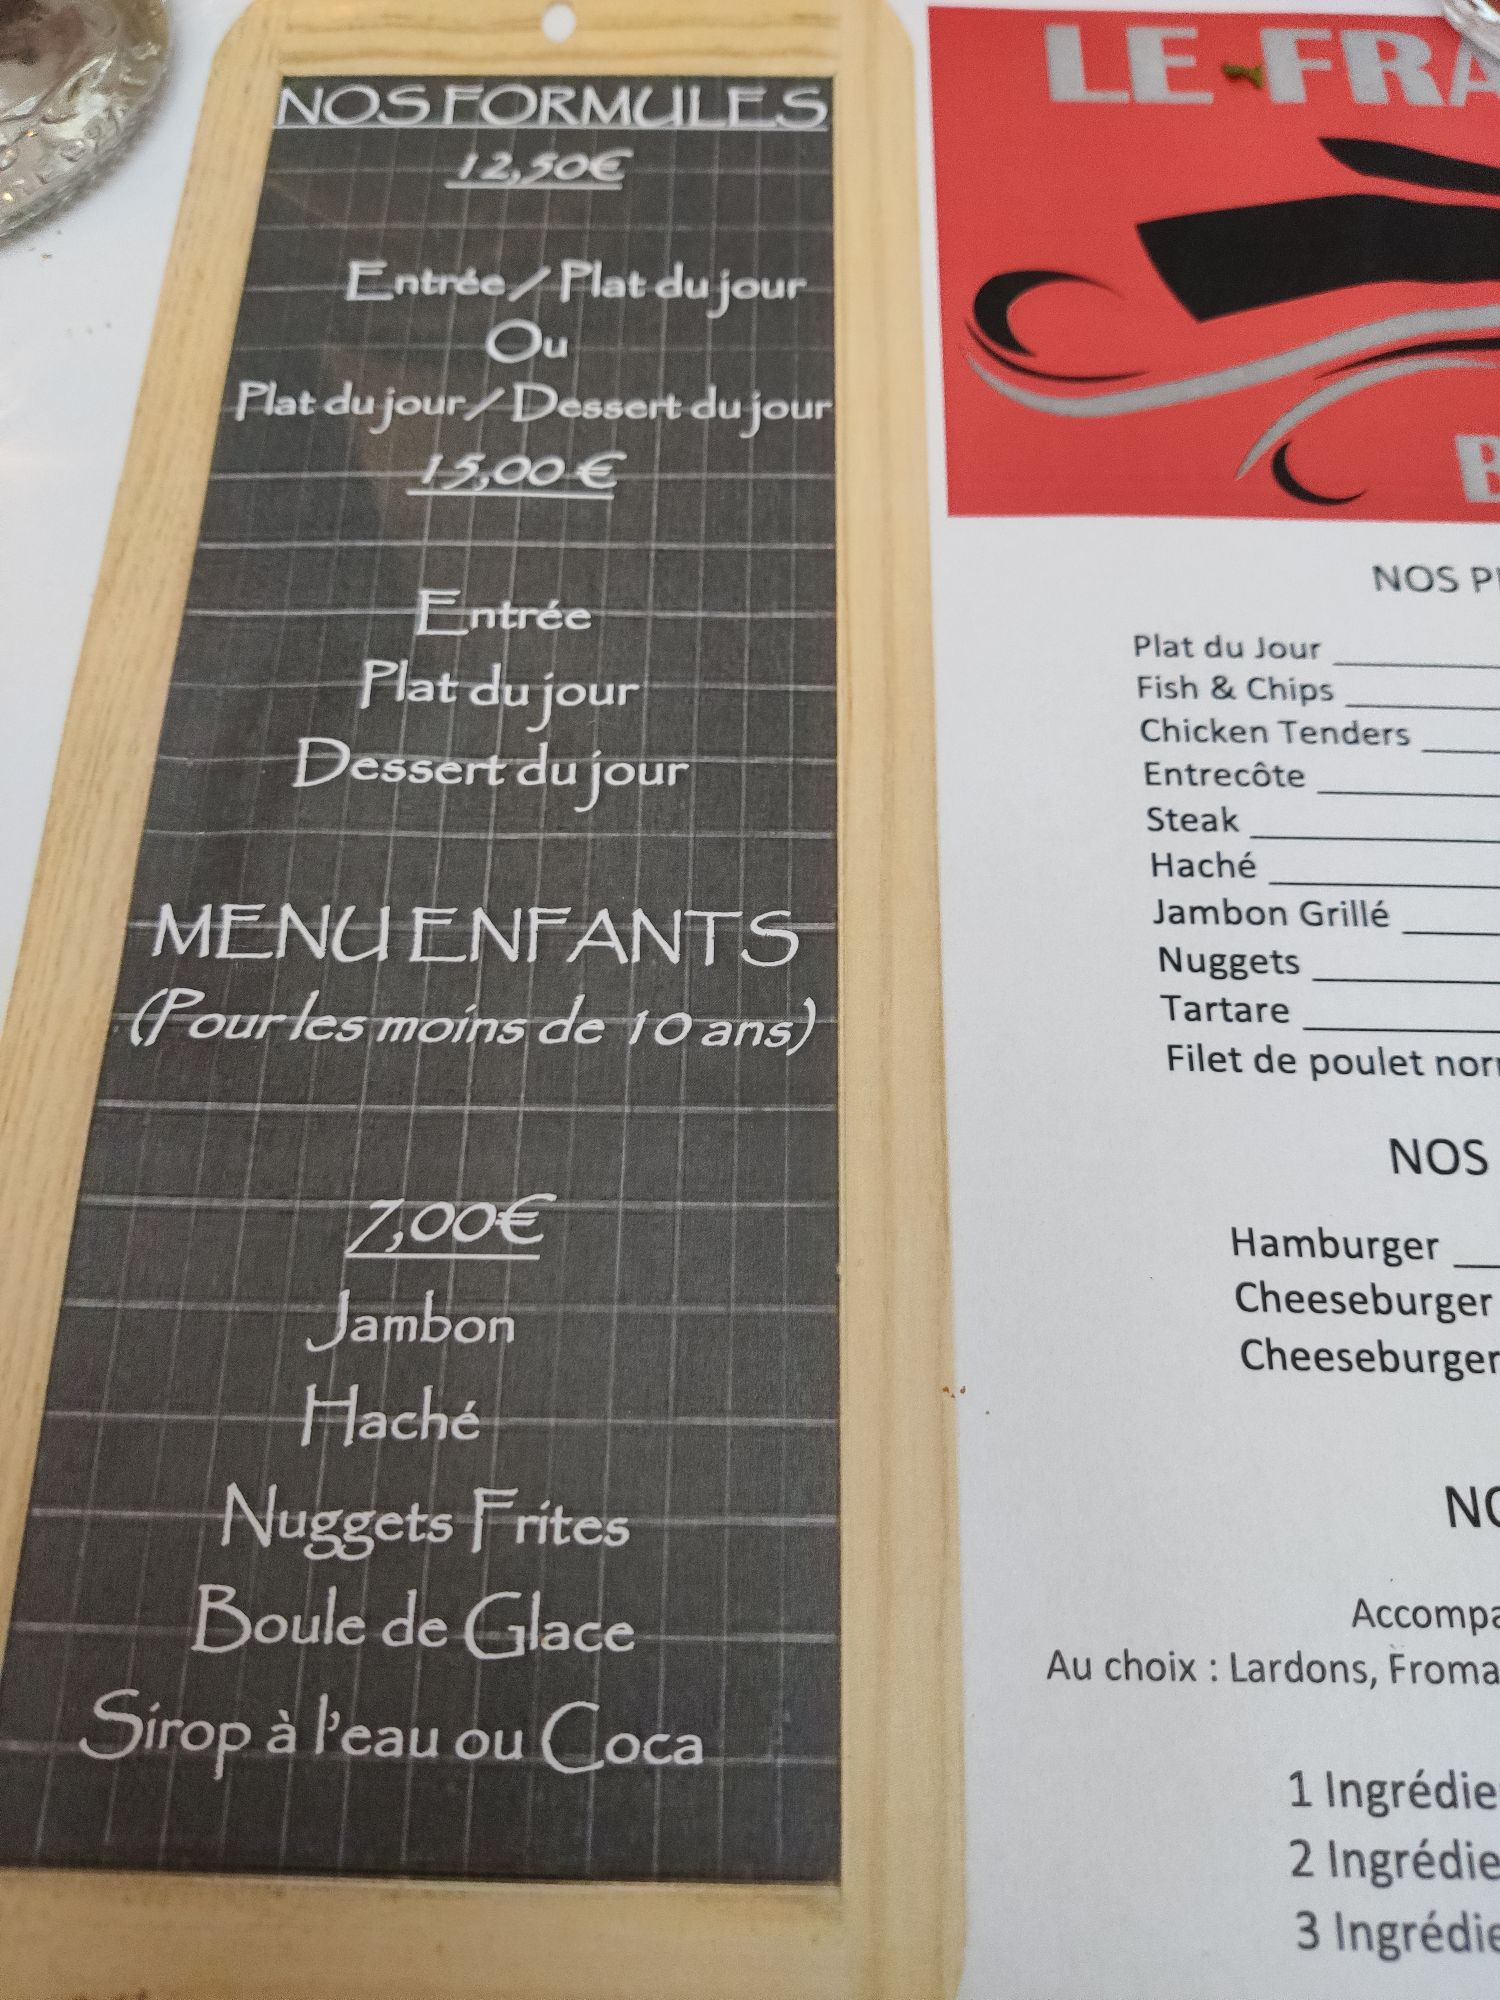 NOS FORMULES
12,50€
Entrée / Plat du jour
Ou
Plat du jour / Dessert du jour
15,00 €
Entrée
Plat du jour
Dessert du jour
MENU ENFANTS
(Pour les moins de 10 ans)
7,00€
Jambon
Haché
Nuggets Frites
Boule de Glace
Sirop à l'eau ou Coca
LE
NOS
Plat du Jour
Fish & Chips
Chicken Tenders
Entrecôte
Steak
Haché
Jambon Grillé
Nuggets
Tartare
Filet de poulet
NOS
Hamburger
Cheeseburger
Cheeseburger
Au choix : Lardons,
1
2
3